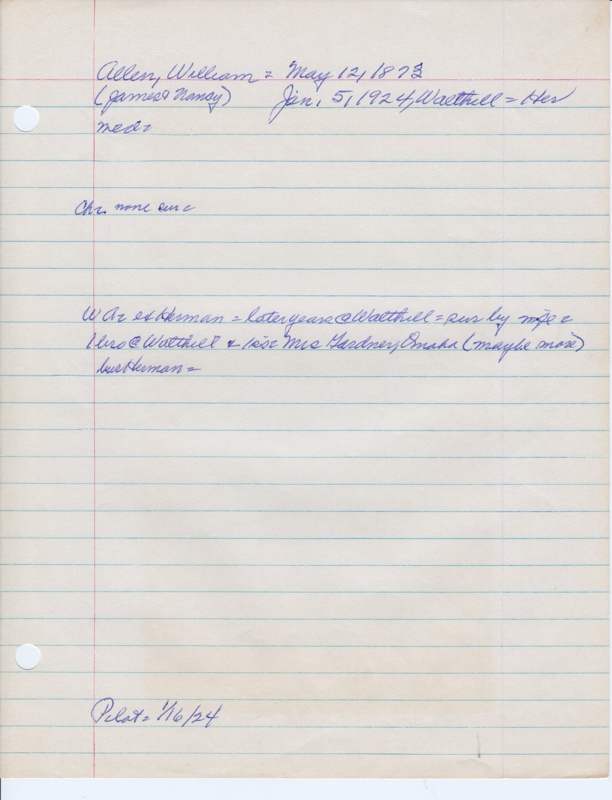 Allen, William = May 12, 1873
(James & Nancy) Jan. 5, 1924, Walthill = Her
med=
Ch= none sur=
W Ar= et Herman = later years @ Walthill = sur by wife =
1 bro @ Walthill & 1 sis= Mrs Gardner, Omaha (maybe more)
bur Herman =
Pilot = 1/16/24